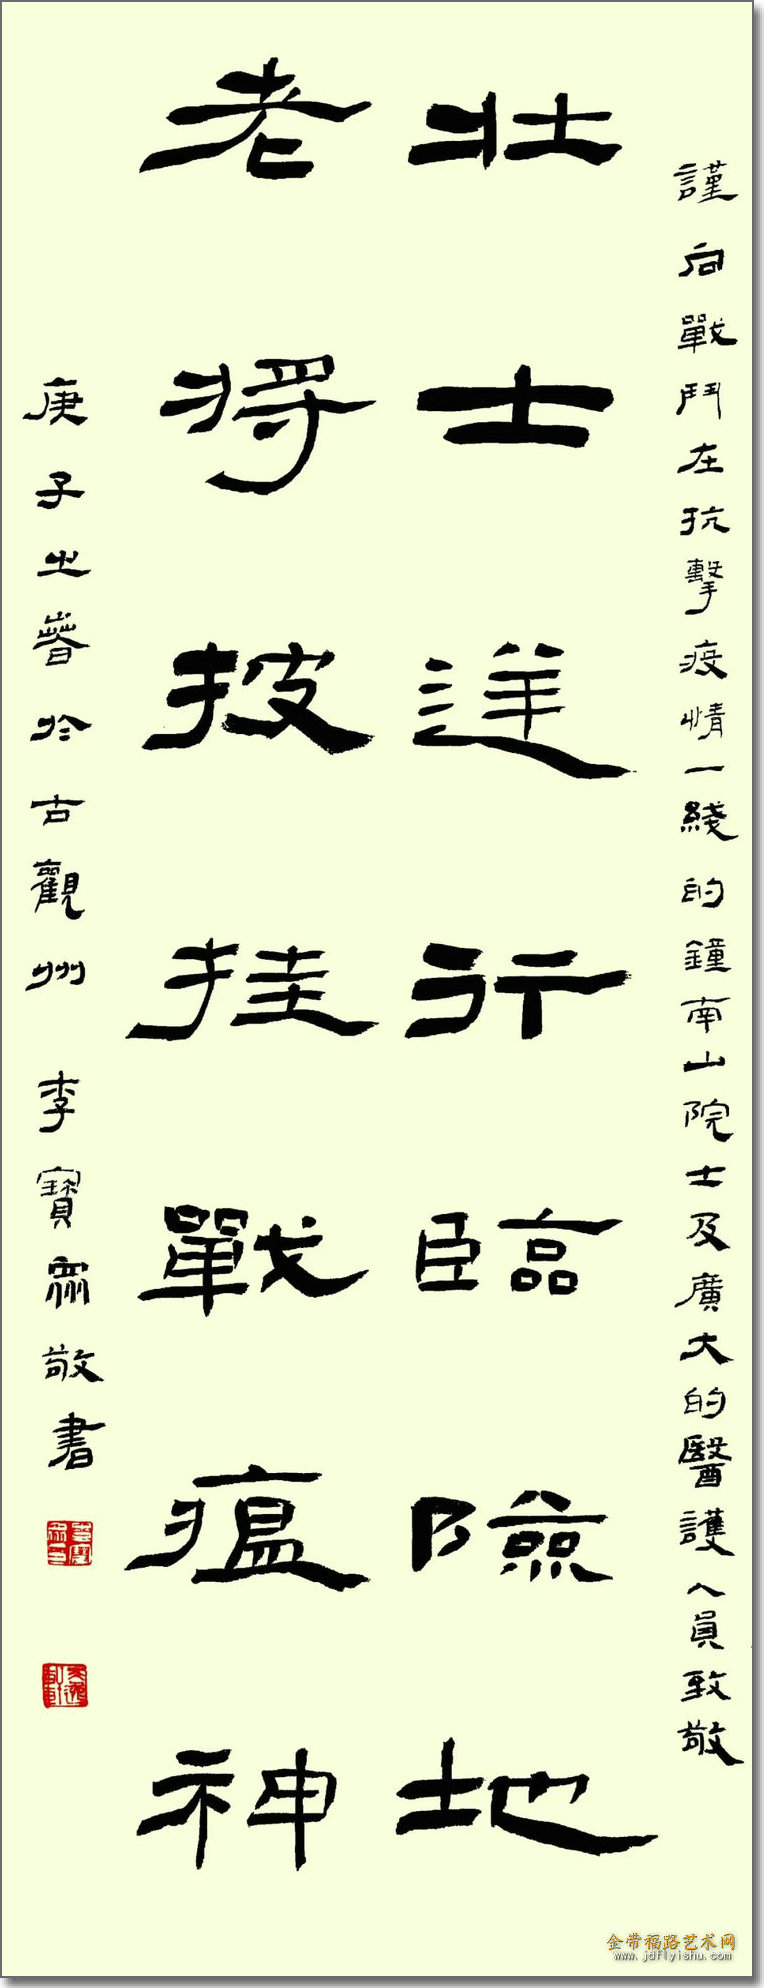 謹向戰鬥在抗擊疫情一綫的鐘南山院士及廣大的醫護人員致敬
壯士逆行臨險地
老將披挂戰瘟神
庚子之春於古觀州 李寶敬書
金带福路艺术网
www.jdflyishu.com